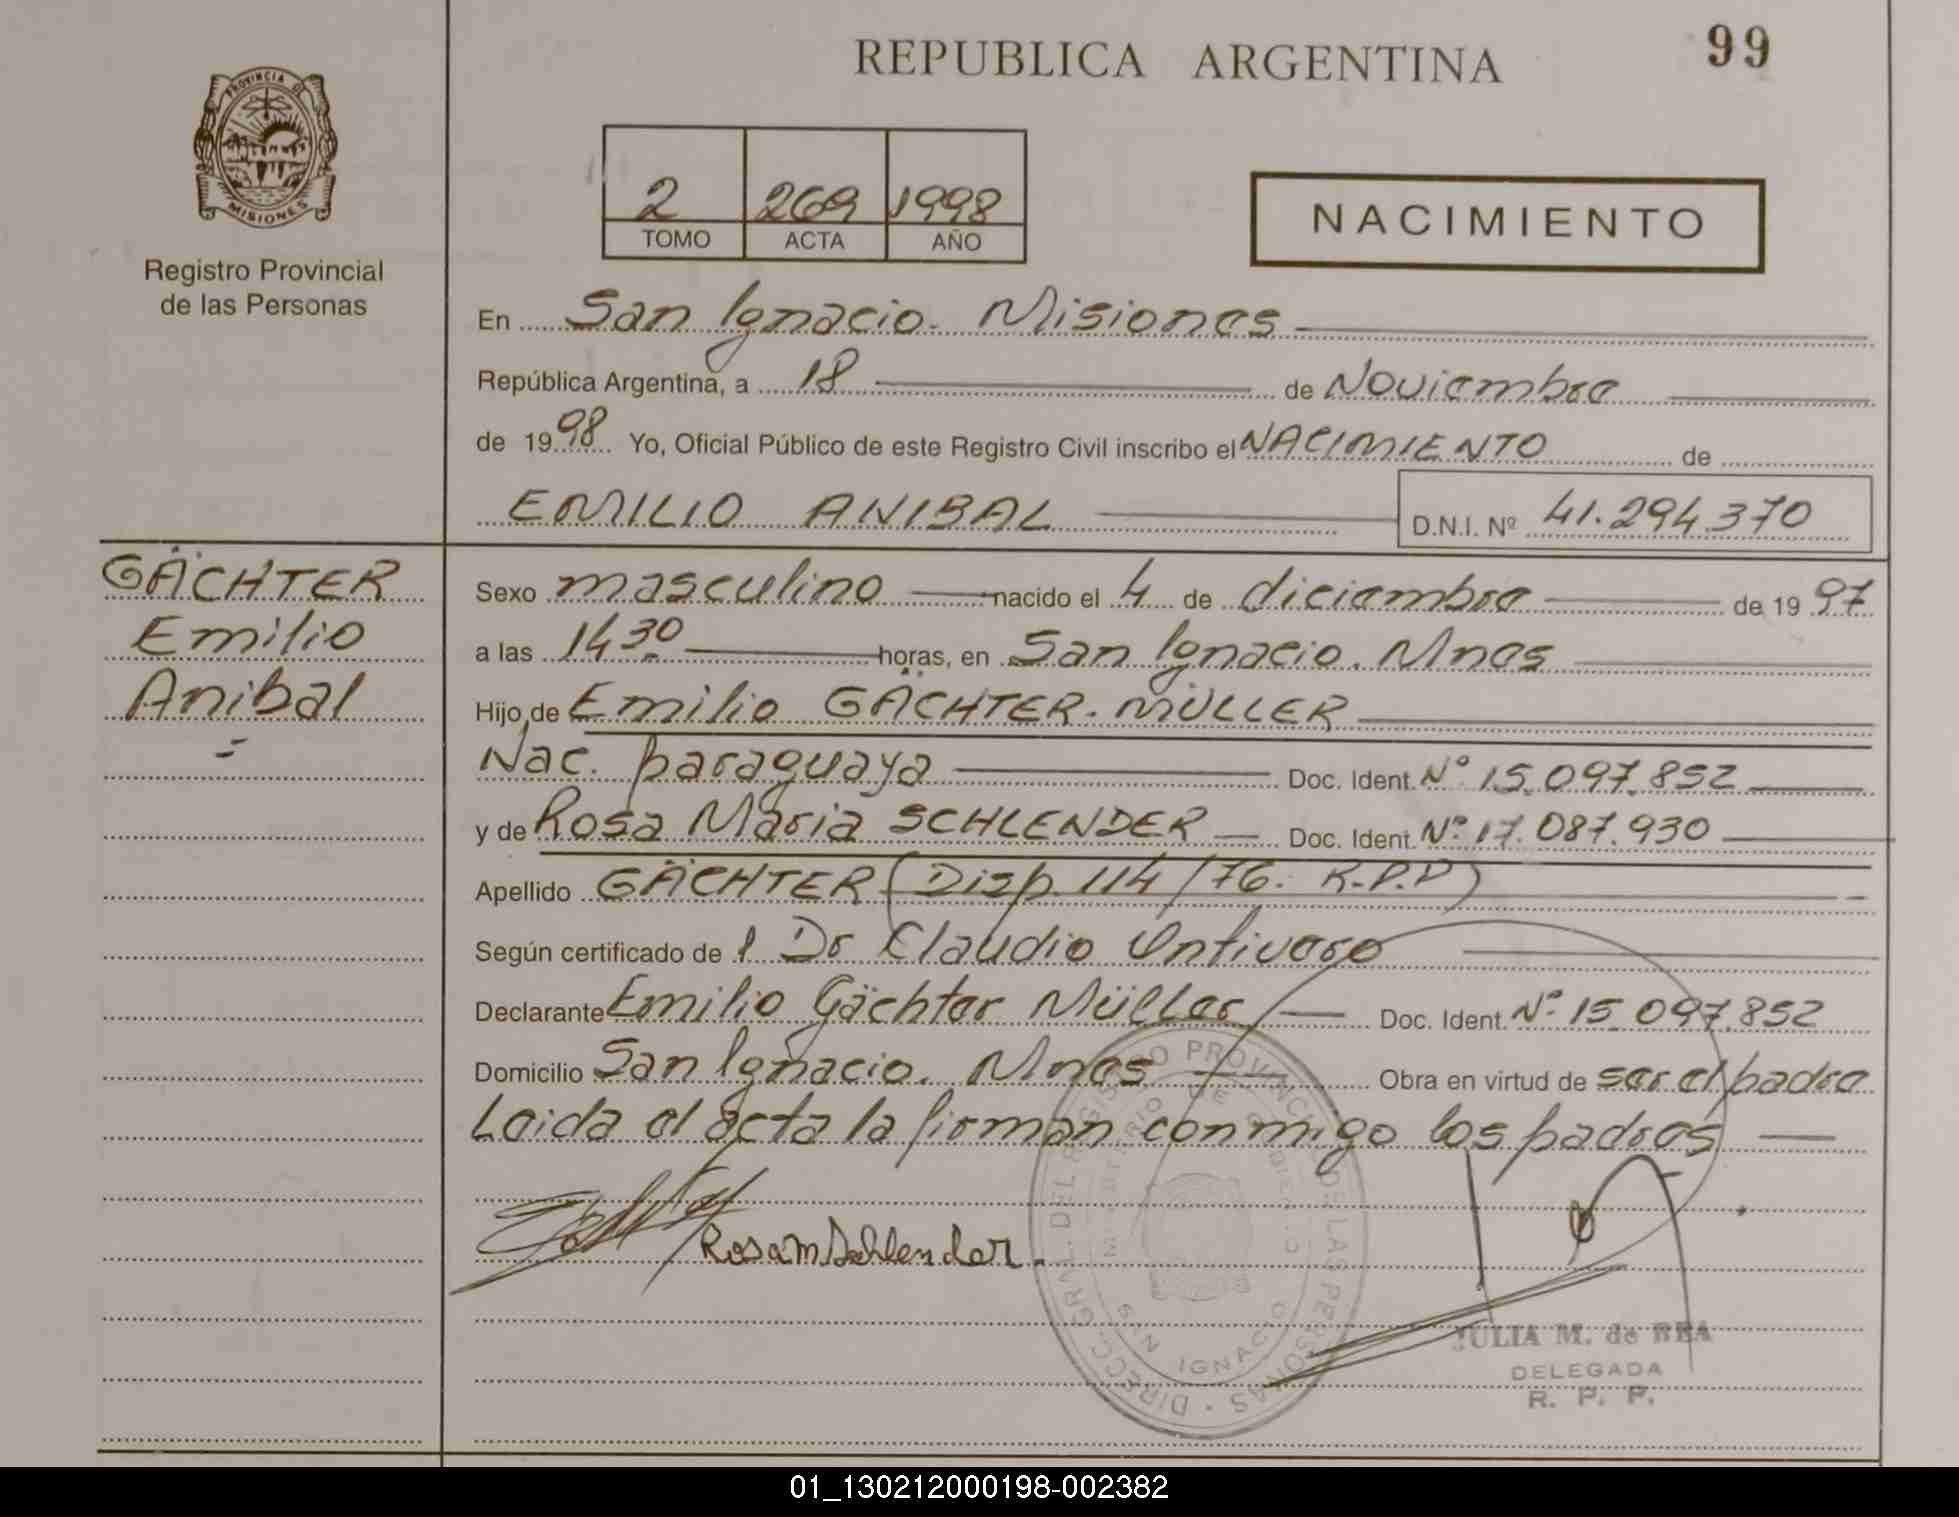 REPUBLICA ARGENTINA
99
PROVINCIA DE
MISIONES
Registro Provincial
de las Personas
2 269 1998
TOMO ACTA AÑO
NACIMIENTO
En San Ignacio. Misiones
República Argentina, a 18 de Noviembre
de 1998 Yo, Oficial Público de este Registro Civil inscribo el NACIMIENTO de
EMILIO ANIBAL D.N.I. Nº 41.294.370
GÄCHTER
Emilio
Anibal
=
Sexo masculino nacido el 4 de diciembre de 1997
a las 14 30 horas, en San Ignacio. Mnes
Hijo de Emilio GÄCHTER. MÜLLER
Nac. paraguaya Doc. Ident. Nº 15.097.852
y de Rosa Maria SCHLENDER Doc. Ident. Nº 17.087.930
Apellido GÄCHTER (Disp. 114/76. R.P.P)
Según certificado de l Dr Claudio Ontivero
Declarante Emilio Gächter Müller Doc. Ident. Nº 15.097.852
Domicilio San Ignacio. Mnes Obra en virtud de ser el padre
Leida el acta la firman conmigo los padres
Rosa M Schlender.
DIRECC. GRAL. DEL REGISTRO PROVINCIAL DE LAS PERSONAS
MINISTERIO DE GOBIERNO
SAN IGNACIO
JULIA M. de BEA
DELEGADA
R. P. P.
01_130212000198-002382